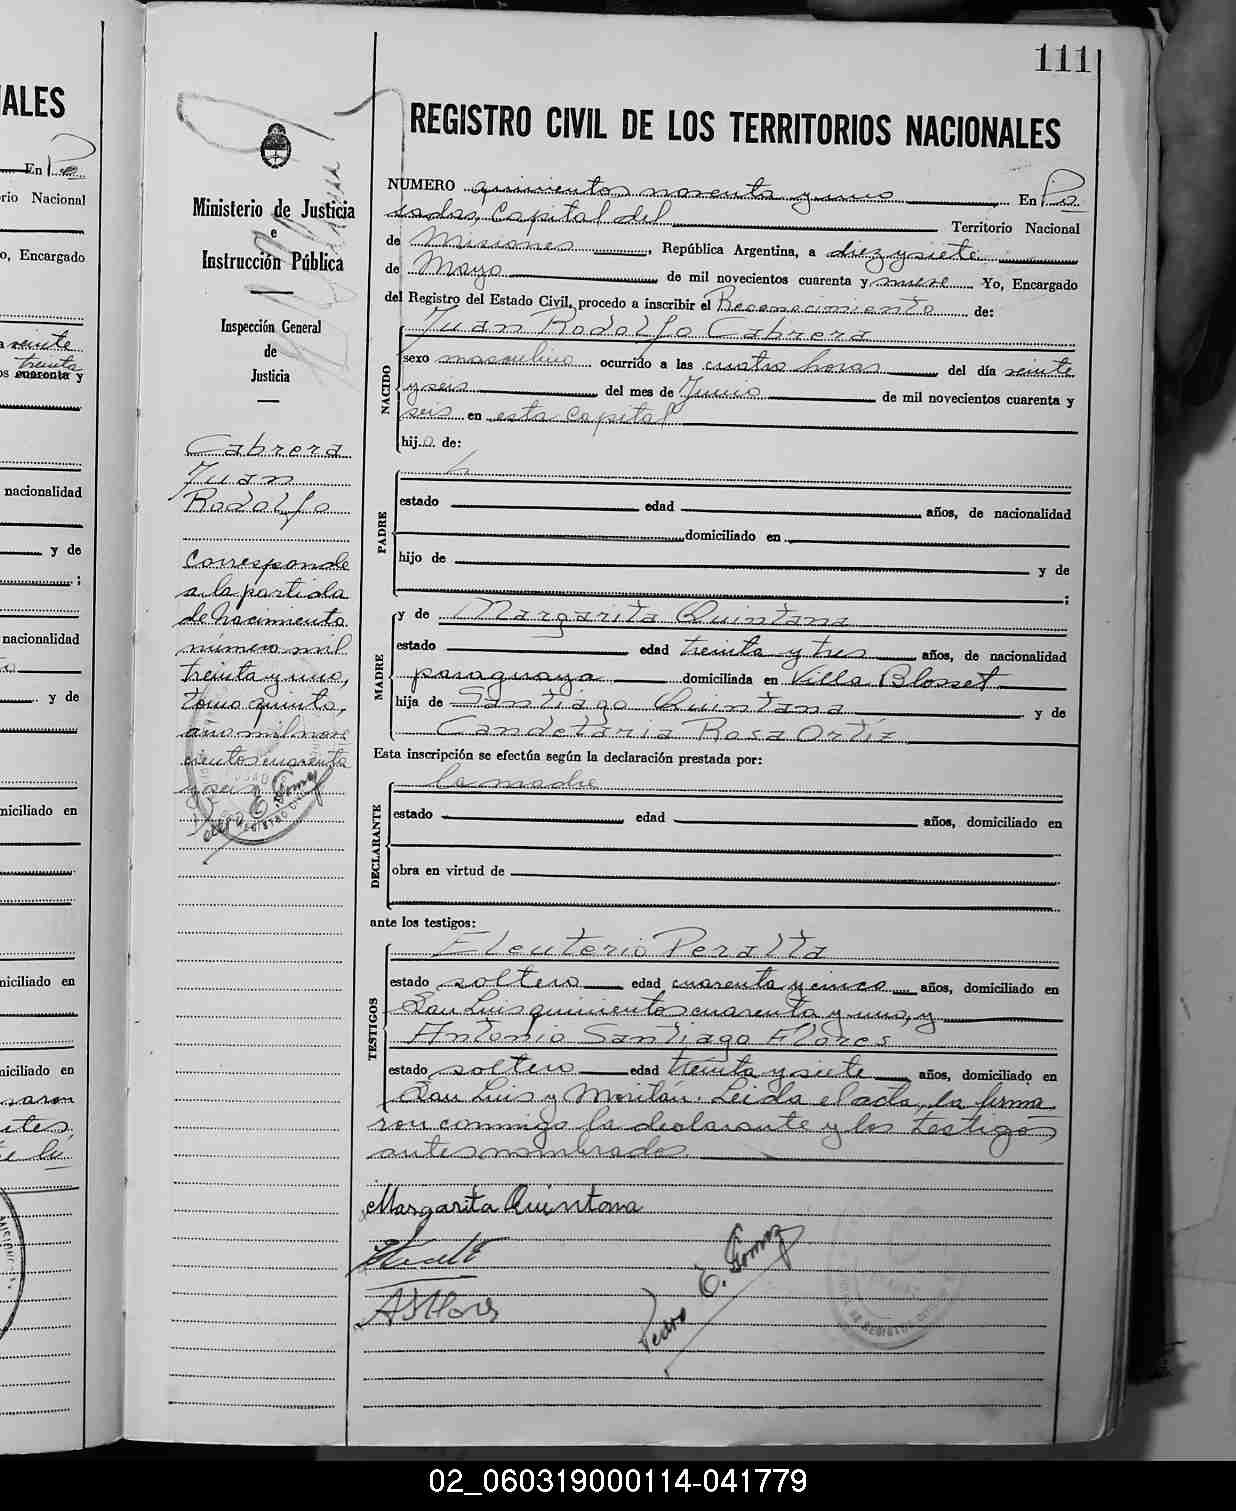 111
REGISTRO CIVIL DE LOS TERRITORIOS NACIONALES
Ministerio de Justicia
e
Instrucción Pública
Inspección General
de
Justicia
Cabrera
Juan
Rodolfo
Corresponde
a la partida
de Nacimiento
número mil
treinta y uno,
tomo quinto,
año mil nove
cientos cuarenta
y seis
Pedro E. Gomez
NUMERO quinientos noventa y uno En Po
sadas, Capital del Territorio Nacional
de Misiones, República Argentina, a diez y siete
de Mayo de mil novecientos cuarenta y nueve Yo, Encargado
del Registro del Estado Civil, procedo a inscribir el Reconocimiento de:
NACIDO
Juan Rodolfo Cabrera
sexo masculino ocurrido a las cuatro horas del día veinte
y seis del mes de Junio de mil novecientos cuarenta y
seis en esta capital
hijo de:
PADRE
estado edad años, de nacionalidad
domiciliado en
hijo de y de
;
MADRE
y de Margarita Quintana
estado edad treinta y tres años, de nacionalidad
paraguaya domiciliada en Villa Blosset
hija de Santiago Quintana y de
Candelaria Rosa Ortíz
Esta inscripción se efectúa según la declaración prestada por:
DECLARANTE
la madre
estado edad años, domiciliado en
obra en virtud de
ante los testigos:
TESTIGOS
Eleuterio Peralta
estado soltero edad cuarenta y cinco años, domiciliado en
San Luis quinientos cuarenta y uno, y
Antonio Santiago Flores
estado soltero edad treinta y siete años, domiciliado en
San Luis y Moritán. Leida el acta, la firma
ron conmigo la declarante y los testigos
antes nombrados.
Margarita Quintana
ASFlores
Pedro E. Gomez
IALES
En Po
rio Nacional
o, Encargado
a veinte
treinta
os cuarenta y
nacionalidad
y de
;
nacionalidad
y de
niciliado en
niciliado en
niciliado en
02_060319000114-041779